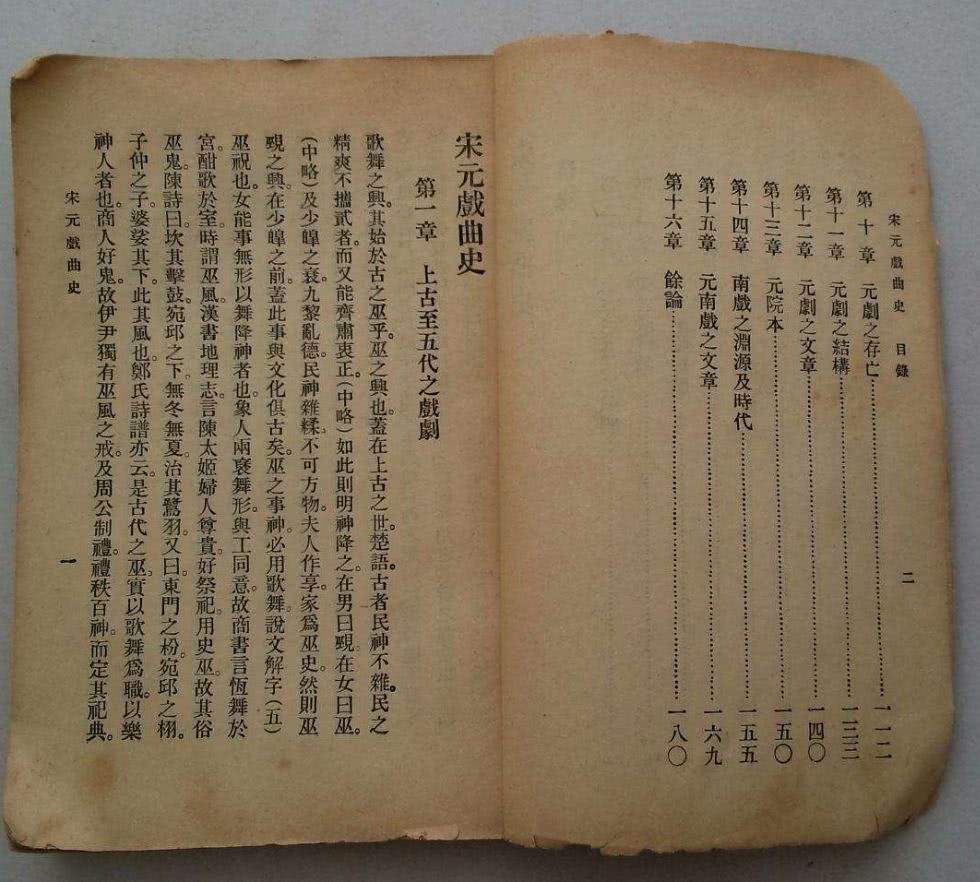 宋元戲曲史 目錄
二
第十章 元劇之存亡……一一二
第十一章 元劇之結構……一三三
第十二章 元劇之文章……一四〇
第十三章 元院本……一五〇
第十四章 南戲之淵源及時代……一五五
第十五章 元南戲之文章……一六九
第十六章 餘論……一八〇
宋元戲曲史
第一章 上古至五代之戲劇
歌舞之興。其始於古之巫乎。巫之興也。蓋在上古之世。楚語。古者民神不雜。民之
精爽不攜貳者。而又能齊肅衷正。(中略)如此則明神降之。在男曰覡。在女曰巫。
(中略)及少皞之衰。九黎亂德。民神雜糅。不可方物。夫人作享。家爲巫史。然則巫
覡之興。在少皞之前。蓋此事與文化俱古矣。巫之事神。必用歌舞。說文解字(五)
巫祝也。女能事無形以舞降神者也。象人兩褎舞形。與工同意。故商書言恆舞於
宮。酣歌於室。時謂巫風。漢書地理志。言陳太姬婦人尊貴。好祭祀。用史巫。故其俗
巫鬼。陳詩曰。坎其擊鼓。宛邱之下。無冬無夏。治其鷺羽。又曰。東門之枌。宛邱之栩。
子仲之子。婆娑其下。此其風也。鄭氏詩譜亦云。是古代之巫。實以歌舞爲職。以樂
神人者也。商人好鬼。故伊尹獨有巫風之戒。及周公制禮。禮秩百神。而定其祀典。
宋元戲曲史
一